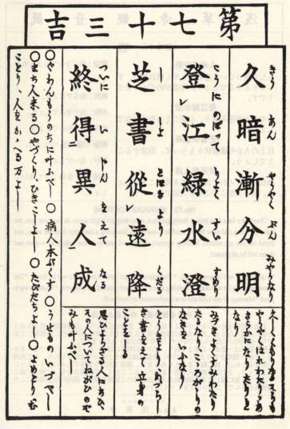 第七十三吉
久暗漸分明
きう あん やうやく ぶん みやうなり
登江緑水澄
こうにのぼつて りよく すい すめり
芝書從遠降
し しよ とほきより くだる
終得異人成
ついに い じん をえて なる
やうやくはれわたりあき
らかになりたりと
なり
たるなり、こゝろがゝりの
なきをいふなり
とうきより、めづらし
き書をえて立身の
ことをしる
思ひよらざる人にあひ、
その人についてねがひのぞ
みも叶ふべし
○ぐわんもうのちに叶ふべし○病人本ぷくす○うせものいづべし
○まち人来る○やづくり、ひきこしよし○たびだちよし○よめどり、むこ
とり、人をかゝへる万よし